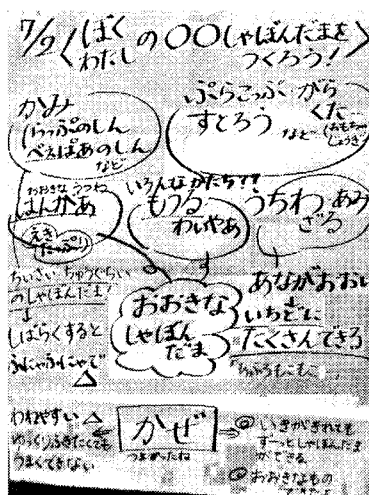 7/9 〈ぼく わたし の〇〇しゃぼんだまを つくろう!〉
かみ
(らっぷのしん
ぺえぱあのしん
など
ぷらこっぷ がら
すとろう くた
など (おもちゃ
じょうぎ)
おおきな うつわ
はんがあ
えき
たっぷり
いろんなかたち??
もうる
わいやあ
うちわ あみ
ざる
ちいさい ちゅうくらい
のしゃぼんだま!
↓
しばらくすると
ふにゃふにゃで
△
おおきな
しゃぼん
だま
あながおおい
↓
いちどに
たくさんできる
われやすい △
ゆっくりふきたくても
うまくできない
かぜ
つよかったね
◎ いきがきれても
ずーっとしゃぼんだま
ができる
◎ おおきなもの